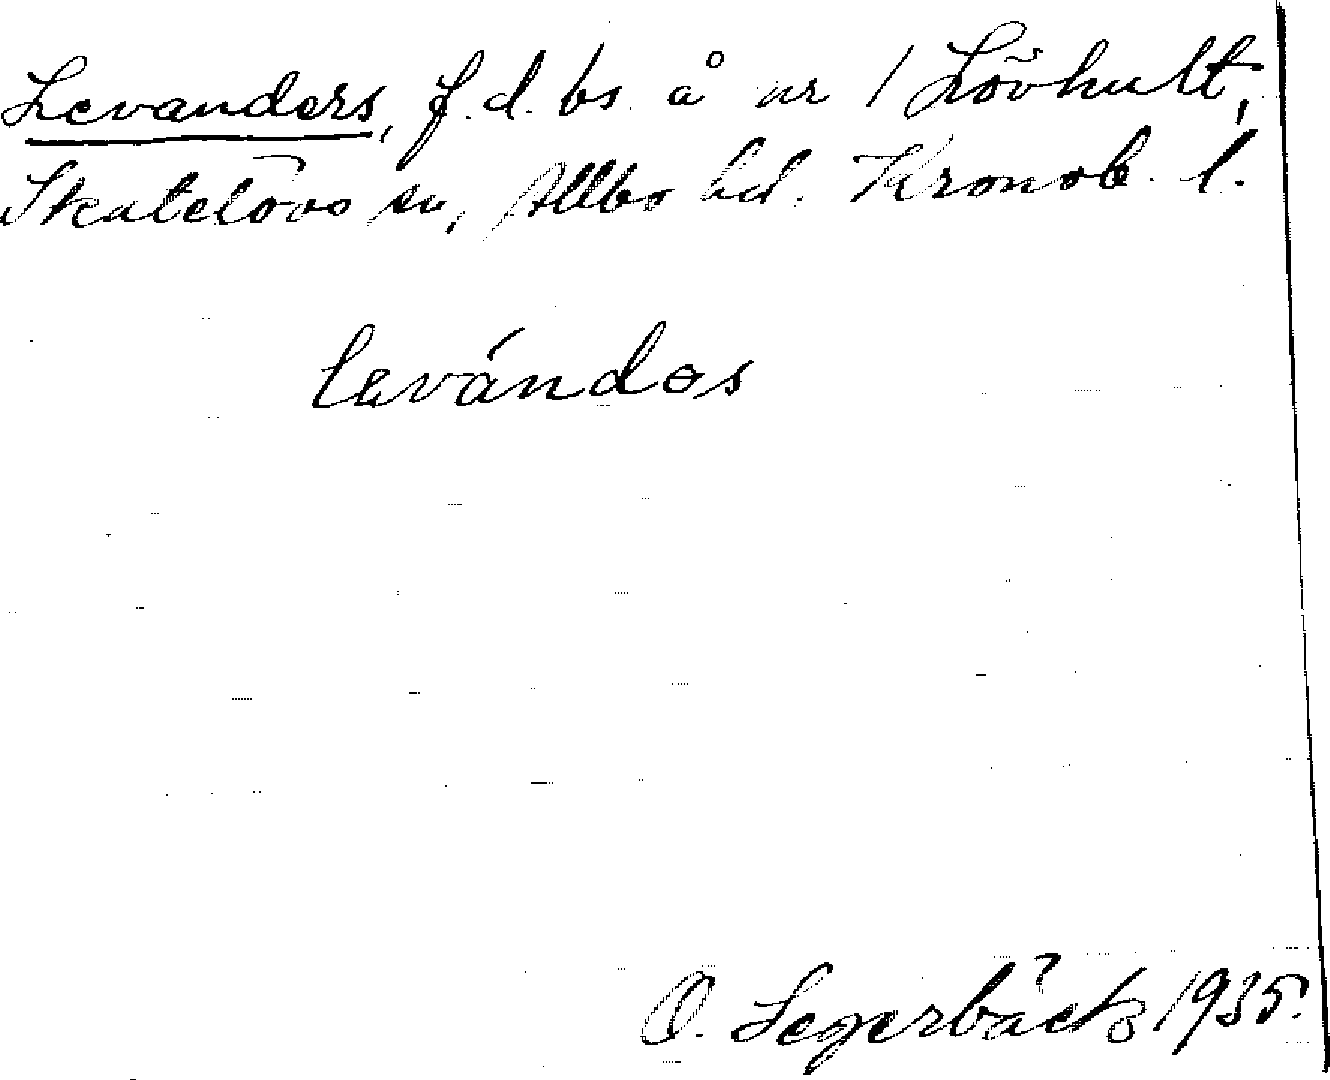 Levanders, f.d. bs å nr 1 Lövhult,
Skatelövs sn, Allbo hd. Kronob. l.
levándəs
O. Segerbäck 1935.